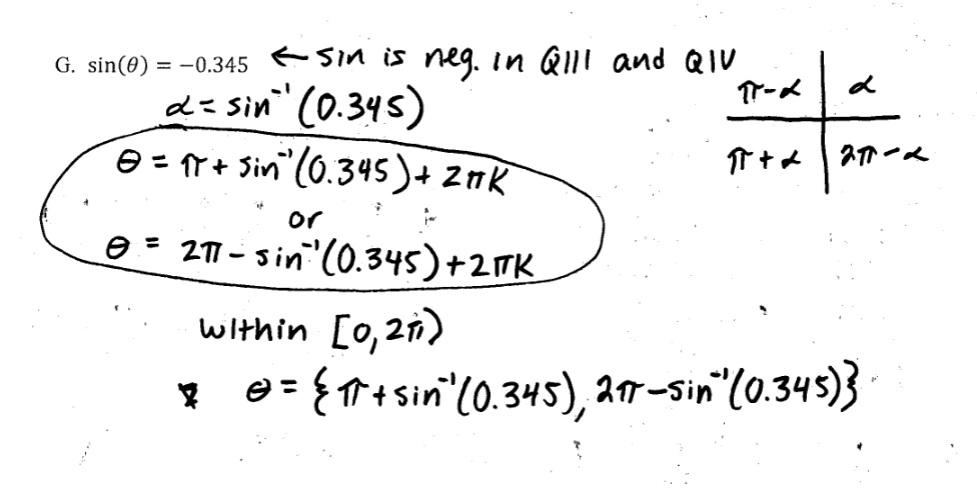 G. sin(θ) = −0.345 ← sin is neg. in QIII and QIV
α = sin⁻¹(0.345)
π-α α
π+α 2π-α
θ = π + sin⁻¹(0.345) + 2πK
or
θ = 2π - sin⁻¹(0.345) + 2πK
within [0, 2π)
θ = {π + sin⁻¹(0.345), 2π - sin⁻¹(0.345)}